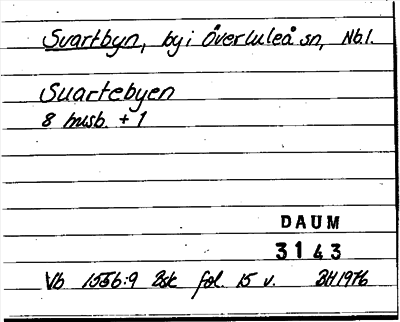 Svartbyn, by i Överluleå sn, Nb.l.
Suartebyen
8 husb. + 1
DAUM
3143
Vb 1556:9 Bsk fol. 15 v. BH 1976